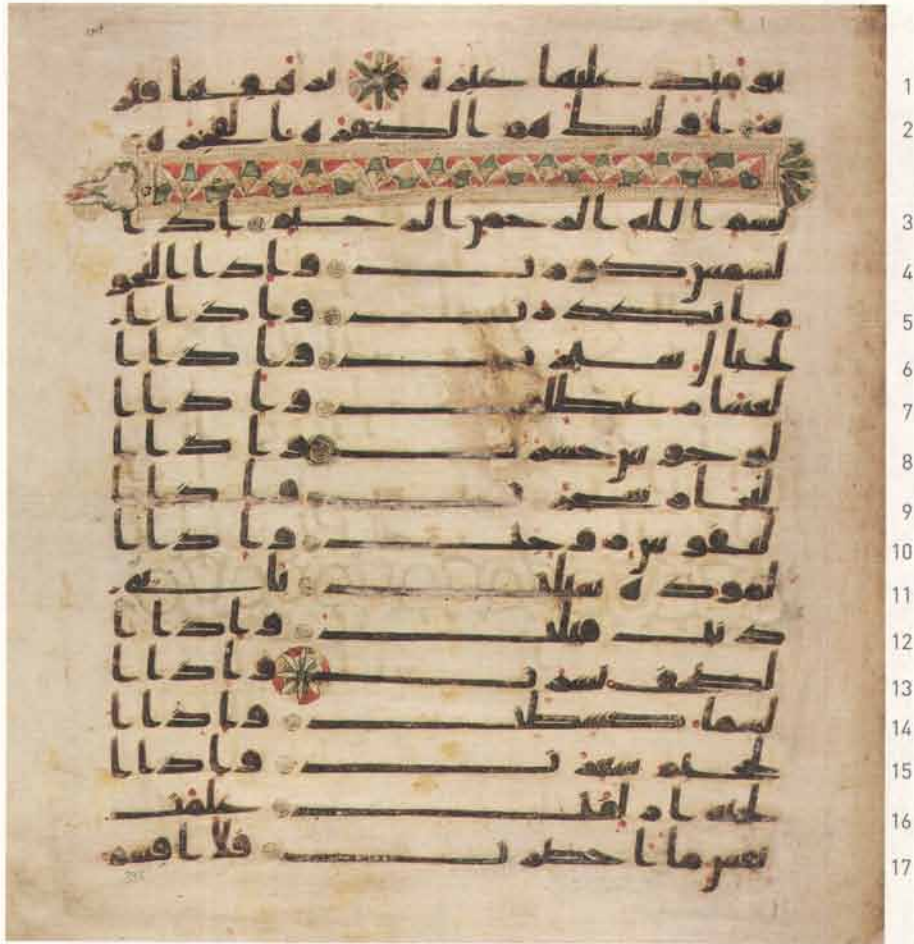 1 يومئذ عليها غبرة ترهقها قتر
2 ة اوليك هم الكفرة الفجرة
3 بسم الله الرحمن الرحيم اذا ا
4 لشمس كورت واذا النجو
5 م انكدرت واذا ا
6 لجبال سيرت واذا ا
7 لعشار عطلت واذا ا
8 لوحوش حشرت واذا ا
9 لبحار سجرت واذا ا
10 لنفوس زوجت واذا ا
11 لموودة سيلت باي
12 ذنب قتلت واذا ا
13 لصحف نشرت واذا ا
14 لسما كشطت واذا ا
15 لجحيم سعرت واذا ا
16 لجنة ازلفت علمت
17 نفس ما احضرت فلا اقسم